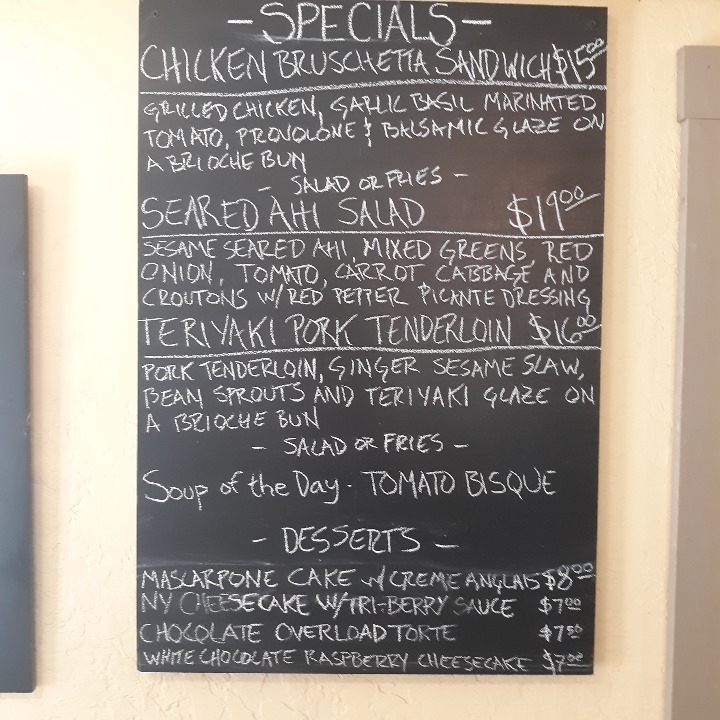 - SPECIALS -
CHICKEN BRUSCHETTA SANDWICH $15.00
GRILLED CHICKEN, GARLIC BASIL MARINATED
TOMATO, PROVOLONE & BALSAMIC GLAZE ON
A BRIOCHE BUN
- SALAD OR FRIES -
SEARED AHI SALAD $19.00
SESAME SEARED AHI, MIXED GREENS, RED
ONION, TOMATO, CARROT CABBAGE AND
CROUTONS W/ RED PEPPER PICANTE DRESSING
TERIYAKI PORK TENDERLOIN $16.00
PORK TENDERLOIN, GINGER SESAME SLAW,
BEAN SPROUTS AND TERIYAKI GLAZE ON
A BRIOCHE BUN
- SALAD OR FRIES -
Soup of the Day - TOMATO BISQUE
- DESSERTS -
MASCARPONE CAKE w/ CREME ANGLAIS $8.00
NY CHEESECAKE W/ TRI-BERRY SAUCE $7.00
CHOCOLATE OVERLOAD TORTE $7.50
WHITE CHOCOLATE RASPBERRY CHEESECAKE $7.00